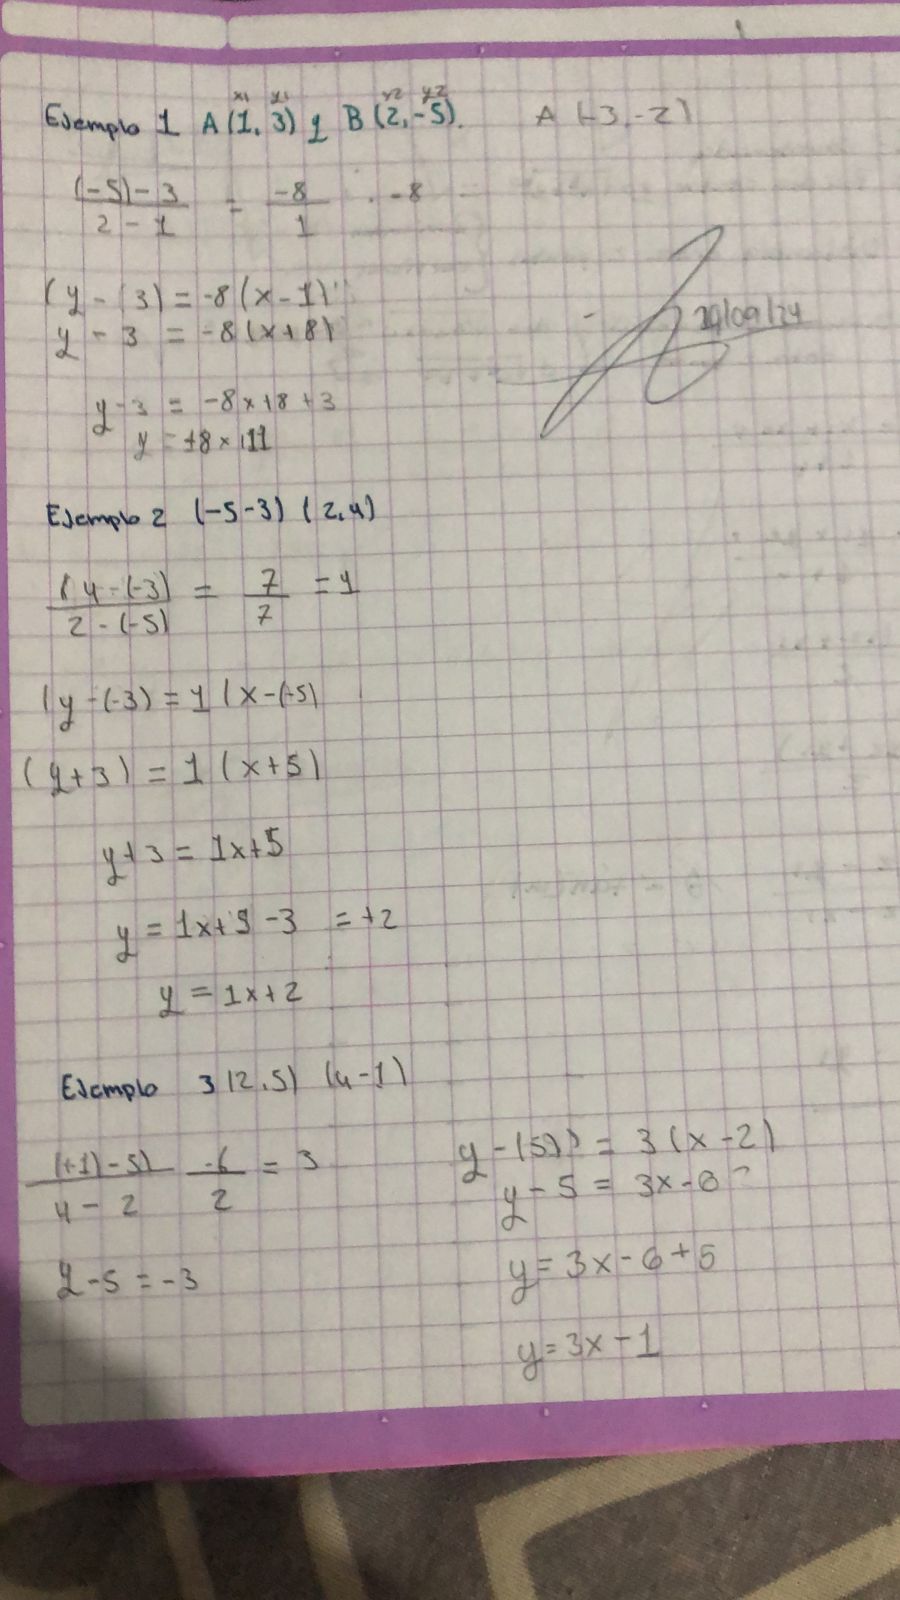 x1 y1 x2 y2
Ejemplo 1 A(1, 3) y B(2, -5). A (-3, -2)
(-5) - 3 / 2 - 1 = -8 / 1 . -8
(y - (3) = -8 (x - 1)
y - 3 = -8 (x + 8)
29/09/24
y - 3 = -8x + 8 + 3
y = +8x 11
Ejemplo 2 (-5 -3) (2, 4)
(4 - (-3) / 2 - (-5) = 7 / 7 = 1
(y - (-3) = 1 (x - (-5)
(y + 3) = 1 (x + 5)
y + 3 = 1x + 5
y = 1x + 5 - 3 = +2
y = 1x + 2
Ejemplo 3 (2, 5) (4 - 1)
(+1) - 5) / 4 - 2 -6 / 2 = 3
y - 5 = -3
y - (5)) = 3 (x - 2)
y - 5 = 3x - 6
y = 3x - 6 + 5
y = 3x - 1